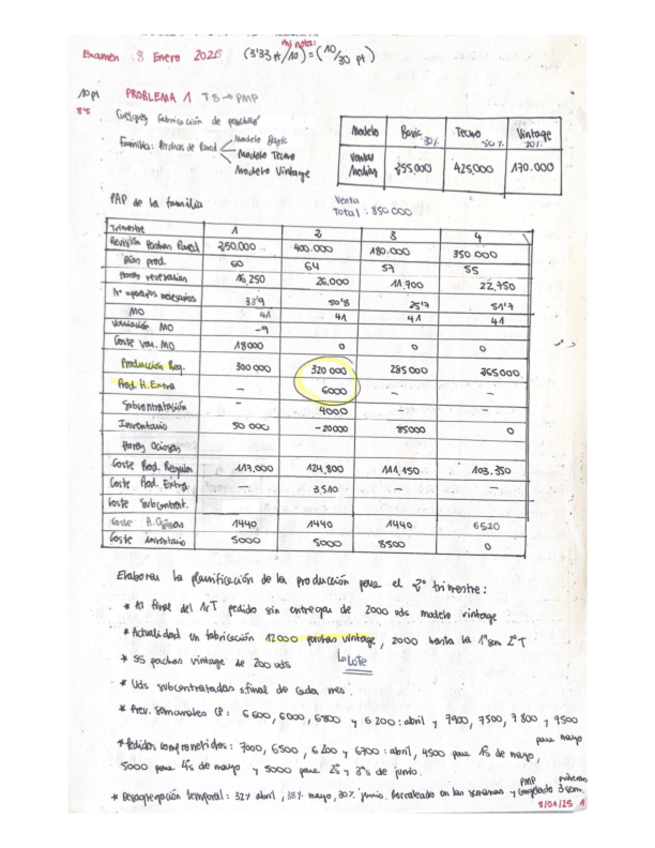 my nota:
Examen 8 Enero 2025 (3'33 pt/10) = (10/30 pt)
10 pt PROBLEMA 1 T8 → PMP
Fabricación de perchas
Familia: Perchas de Pared
Modelo Basic
Modelo Tecno
Modelo Vintage
Modelo Basic 30% Tecno 50% Vintage 20%
Ventas Medias 255,000 425,000 170.000
PAP de la familia
Venta Total: 850 000
Trimestre 1 2 3 4
Pared 250.000 400.000 180.000 350.000
Días prod. 60 64 57 55
Horas necesarias 16,250 26.000 11,700 22,750
Nº operarios necesarios 33'9 50'8 25'7 51'7
MO 41 41 41 41
Variación MO -9
Coste var. MO 18000 0 0 0
Producción Reg. 300 000 320 000 285 000 265 000
Prod. H. Extra - 6000 - -
Subcontratación - 4000 - -
Inventario 50 000 -20000 85000 0
Horas Ociosas
Coste Prod. Regular 117,000 124,800 111,150 103.350
Coste Prod. Extra - 3,510 - -
Coste Subcontrat.
Coste H. Ociosas 1440 1440 1440 6520
Coste inventario 5000 5000 8500 0
Elaborar la planificación de la producción para el 2º trimestre:
* Al final del 1erT pedido sin entregar de 2000 uds modelo vintage
* Actualidad en fabricación 12000 perchas vintage, 2000 hasta la 1ªsem 2ºT
* SS perchas vintage de 200 uds
Lo LOTE
* Uds subcontratadas final de cada mes.
* Prev. semanales CP: 6600, 6000, 6800 y 6200: abril y 7900, 7500, 7800 y 9500
para mayo
* Pedidos comprometidos: 7000, 6500, 6200 y 6700: abril, 4500 para 1ªs de mayo,
5000 para 4ªs de mayo y 5000 para 2ªs y 3ªs de junio.
* Desagregación temporal: 32% abril, 38% mayo, 30% junio. en las semanas y PMP congelado 3 sem.
8/01/25 1